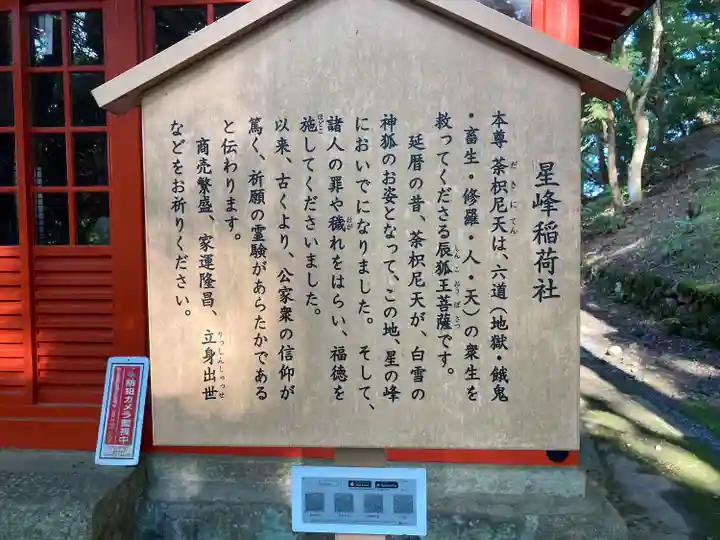 星峰稲荷社
本尊 荼枳尼天は、六道(地獄・餓鬼
だきにてん
・畜生・修羅・人・天)の衆生を
救ってくださる辰狐王菩薩です。
しんこおうぼさつ
延暦の昔、荼枳尼天が、白雪の
神狐のお姿となって、この地、星の峰
においでになりました。そして、
諸人の罪や穢れをはらい、福徳を
おが
施してくださいました。
ほどこ
以来、古くより、公家衆の信仰が
篤く、祈願の霊験があらたかである
と伝わります。
商売繁盛、家運隆昌、立身出世
りっしんしゅっせ
などをお祈りください。
防犯カメラ監視中